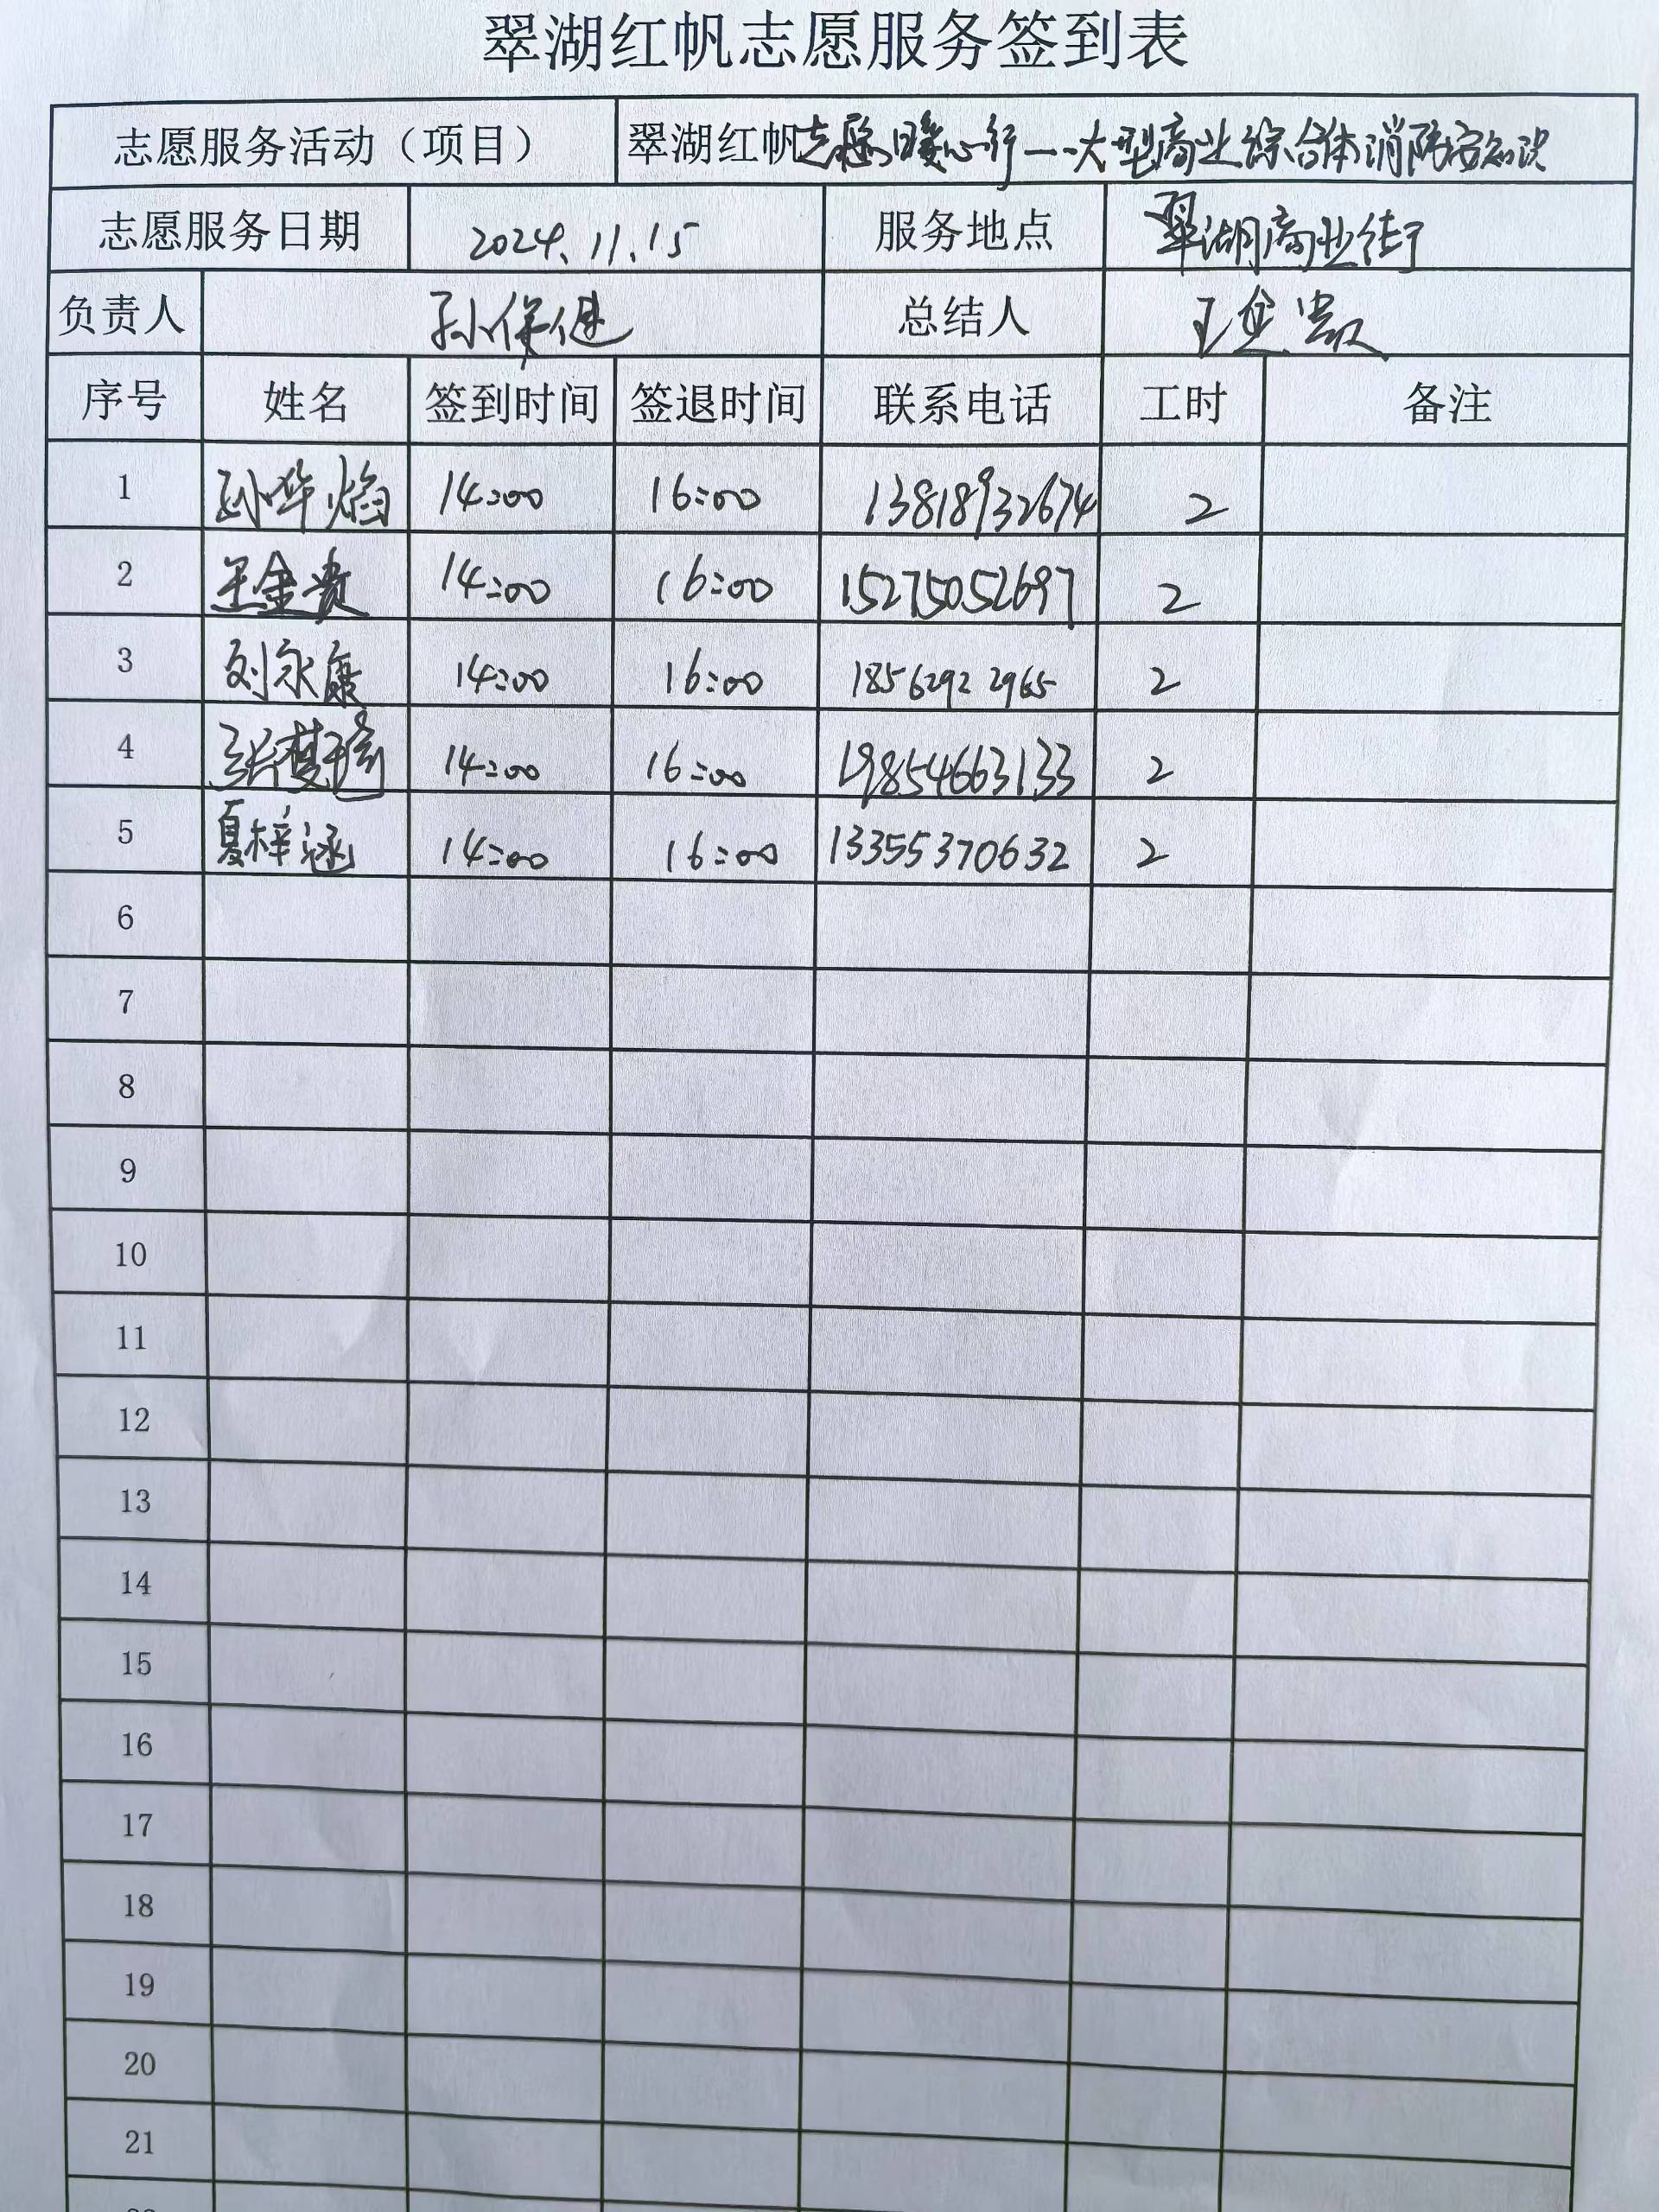 翠湖红帆志愿服务签到表
志愿服务活动（项目） 翠湖红帆志愿暖心行——大型商业综合体消防安知识
志愿服务日期 2024.11.15 服务地点 翠湖商业街
负责人 孙保进 总结人 王金贵
序号 姓名 签到时间 签退时间 联系电话 工时 备注
1 孙晔焰 14:00 16:00 13818932674 2
2 王金贵 14:00 16:00 15275052697 2
3 刘永康 14:00 16:00 18562922965 2
4 14:00 16:00 19854663133 2
5 夏梓涵 14:00 16:00 13355370632 2
6
7
8
9
10
11
12
13
14
15
16
17
18
19
20
21